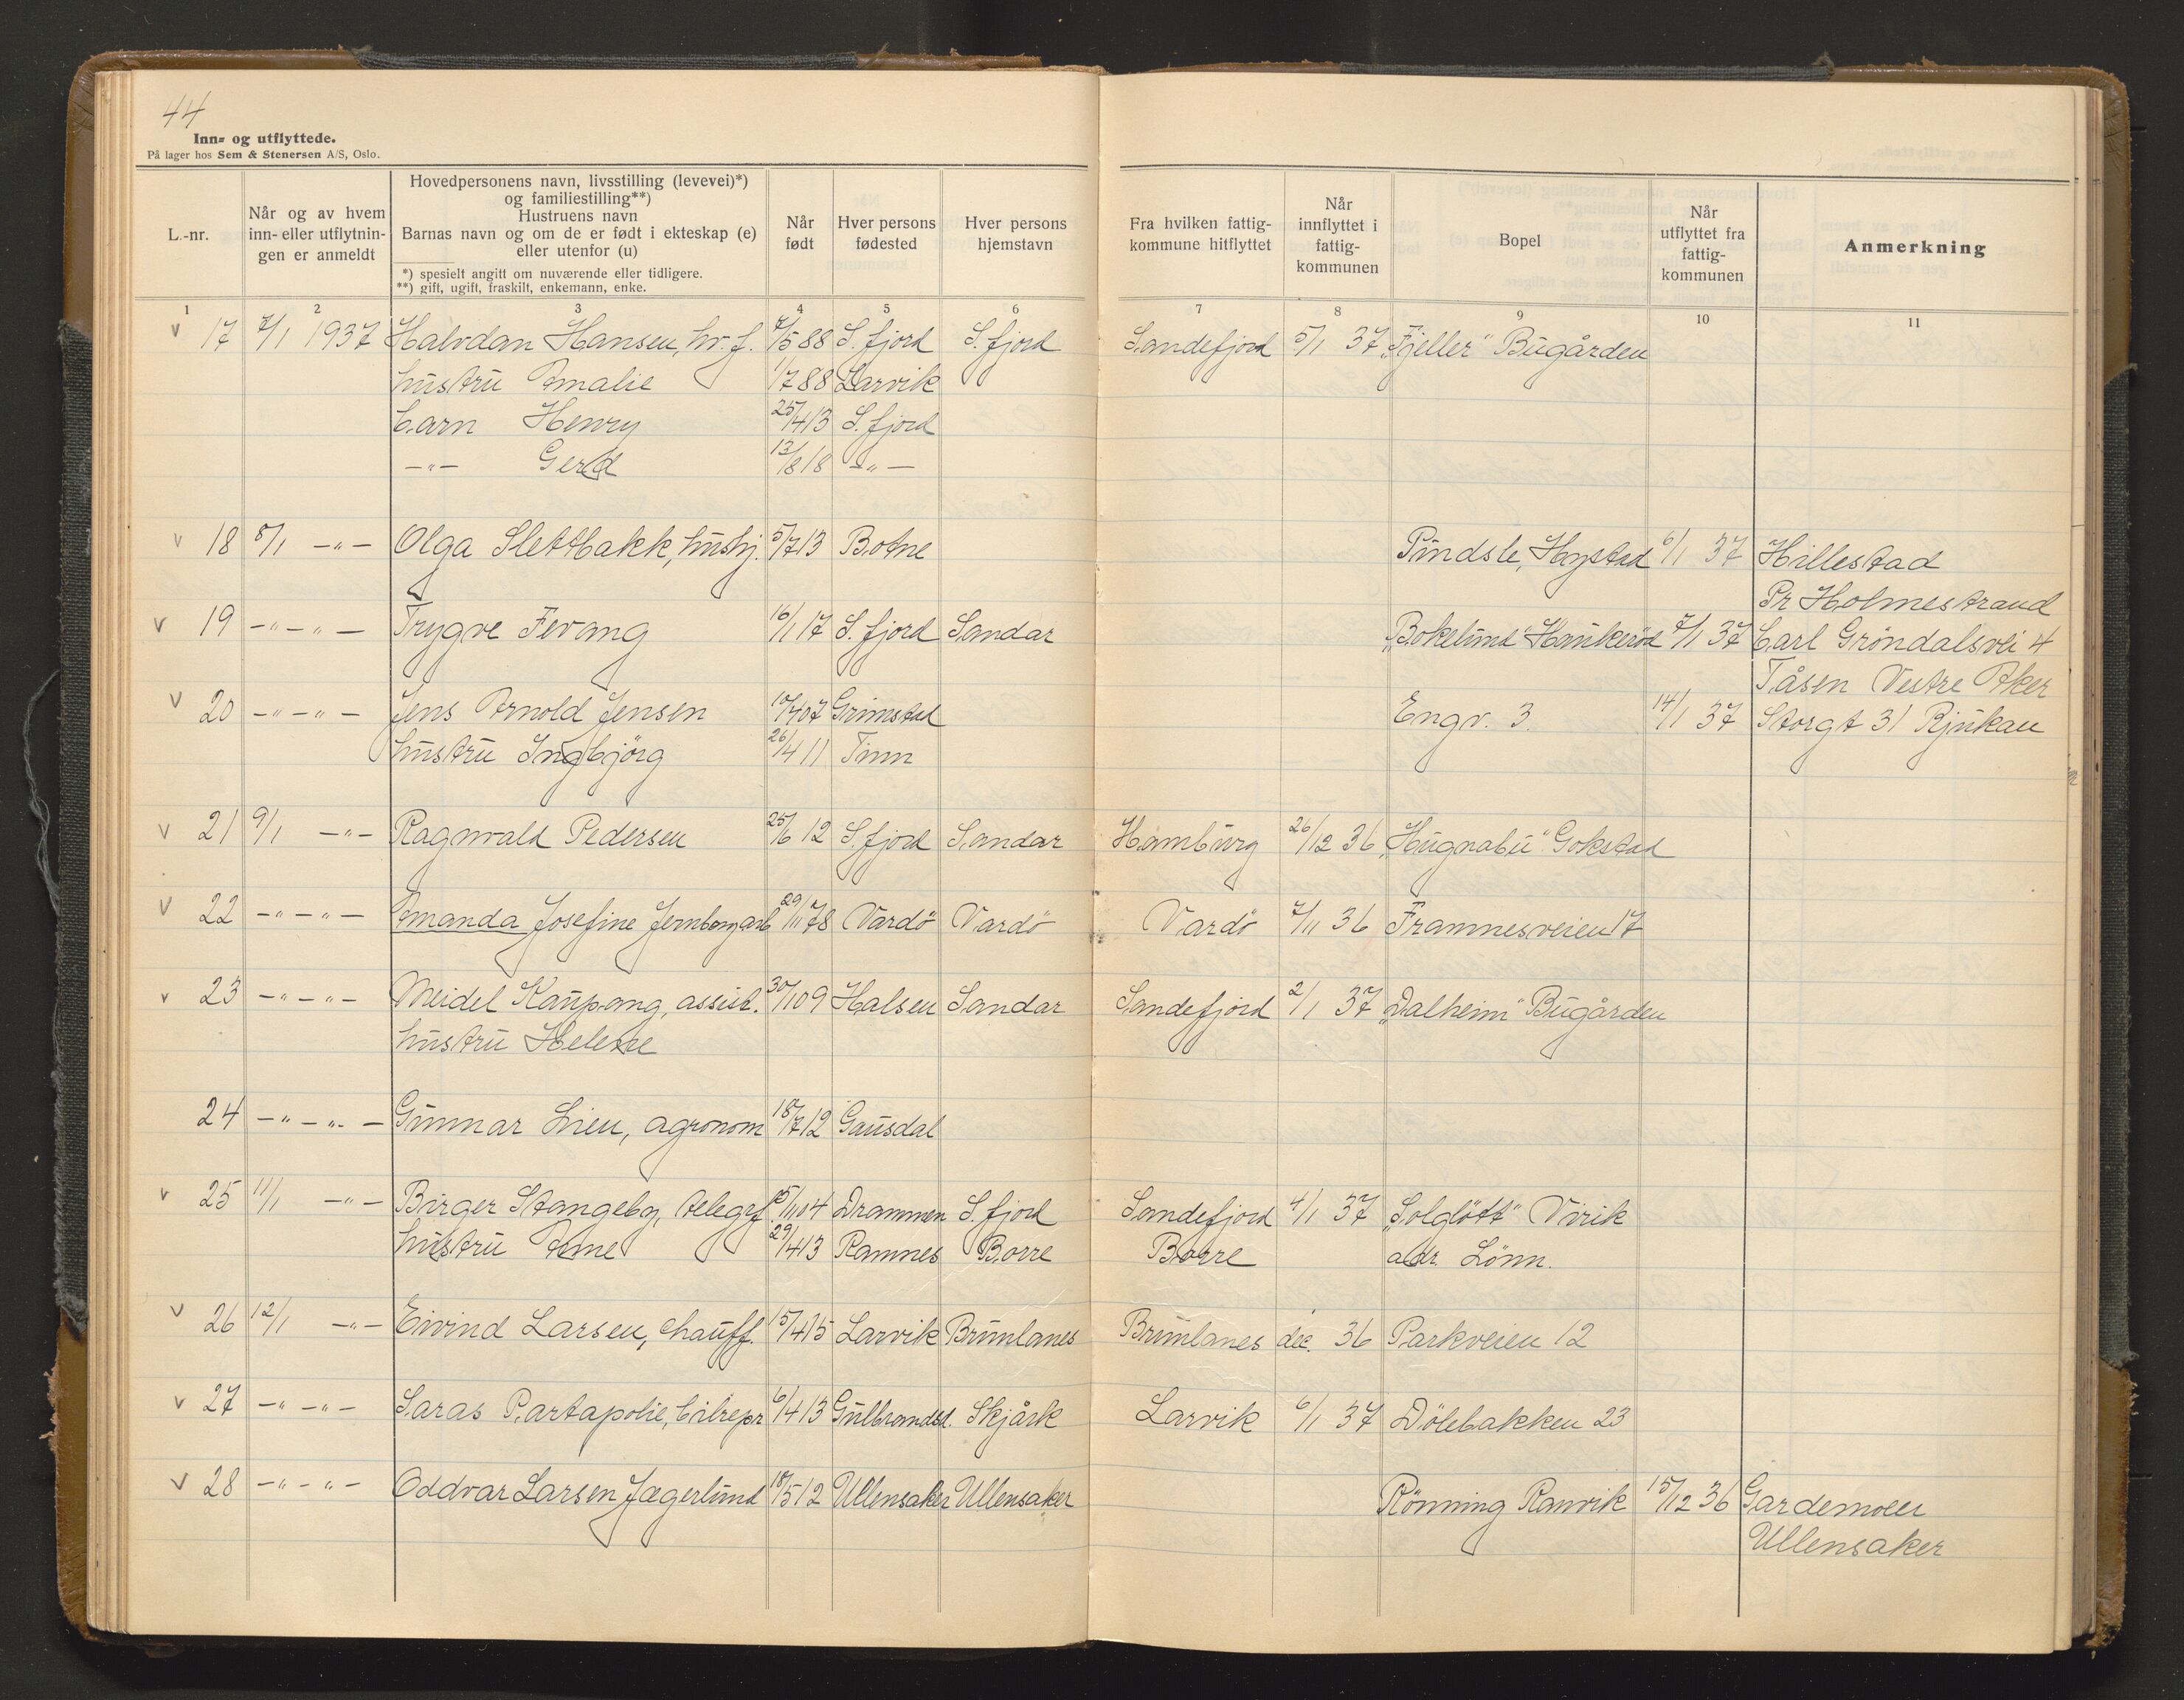 44
Inn- og utflyttede.
På lager hos Sem & Stenersen A/S, Oslo.
L.-nr.
Når og av hvem
inn- eller utflytnin-
gen er anmeldt
Hovedpersonens navn, livsstilling (levevei)*)
og familiestilling**)
Hustruens navn
Barnas navn og om de er født i ekteskap (e)
eller utenfor (u)
*) spesielt angitt om nuværende eller tidligere.
**) gift, ugift, fraskilt, enkemann, enke.
Når
født
Hver persons
fødested
Hver persons
hjemstavn
Fra hvilken fattig-
kommune hitflyttet
Når
innflyttet i
fattig-
kommunen
Bopel
Når
utflyttet fra
fattig-
kommunen
Anmerkning
1 2 3 4 5 6 7 8 9 10 11
v 17 7/1 1937 Halvdan Hansen, hv. f. 7/5 88 S. fjord S. fjord Sandefjord 5/1 37 „Fjeller" Bugården
hustru Amalie 1/7 88 Larvik
barn Henry 25/4 13 S. fjord
-"- Gerd 13/8 18 -"-
v 18 8/1 -"- Olga Slettbakk, hushj. 5/7 13 Botne Pindsle, Hystad 6/1 37 Hillestad
Pr Holmestrand
v 19 -"-"- Trygve Fevang 16/1 17 S. fjord Sandar „Bokelund" Haukeröd 7/1 37 Carl Gröndalsvei 4
Tåsen Vestre Aker
v 20 -"-"- Jens Arnold Jensen 07 Grimstad Engv. 3. 14/1 37 Storgt 31 Rjukan
hustru Ingbjörg 26/4 11 Tinn
v 21 9/1 -"- Ragnvald Pedersen 25/6 12 S. fjord Sandar Hamburg 26/12 36 „Hugnabu" Gokstad
v 22 -"-"- Amanda Josefine Jernberg arb 29/11 78 Vardö Vardö Vardö 7/11 36 Framnesveien 17
v 23 -"-"- Meidel Kaupang, assist. 30/1 09 Halsen Sandar Sandefjord 2/1 37 „Dalheim" Bugården
hustru Helene
24 -"-"- Gunnar Lien, agronom 18/7 12 Gausdal
v 25 11/1 -"- Birger Stangeby, telegrf. 5/11 04 Drammen S. fjord Sandefjord 4/1 37 „Solglött" Virik
hustru Anne 29/4 13 Ramnes Borre Borre adr. Lönn.
v 26 12/1 -"- Eivind Larsen, chauff. 15/4 15 Larvik Brunlanes Brunlanes dec. 36 Parkveien 12
v 27 -"-"- Saras Partapolie, bilrepr 6/4 13 Gulbrandsd. Skjåk Larvik 6/1 37 Dölebakken 23
v 28 -"-"- Oddvar Larsen Jægerlund 18/5 12 Ullensaker Ullensaker Rönning Ranvik 15/12 36 Gardemoen
Ullensaker